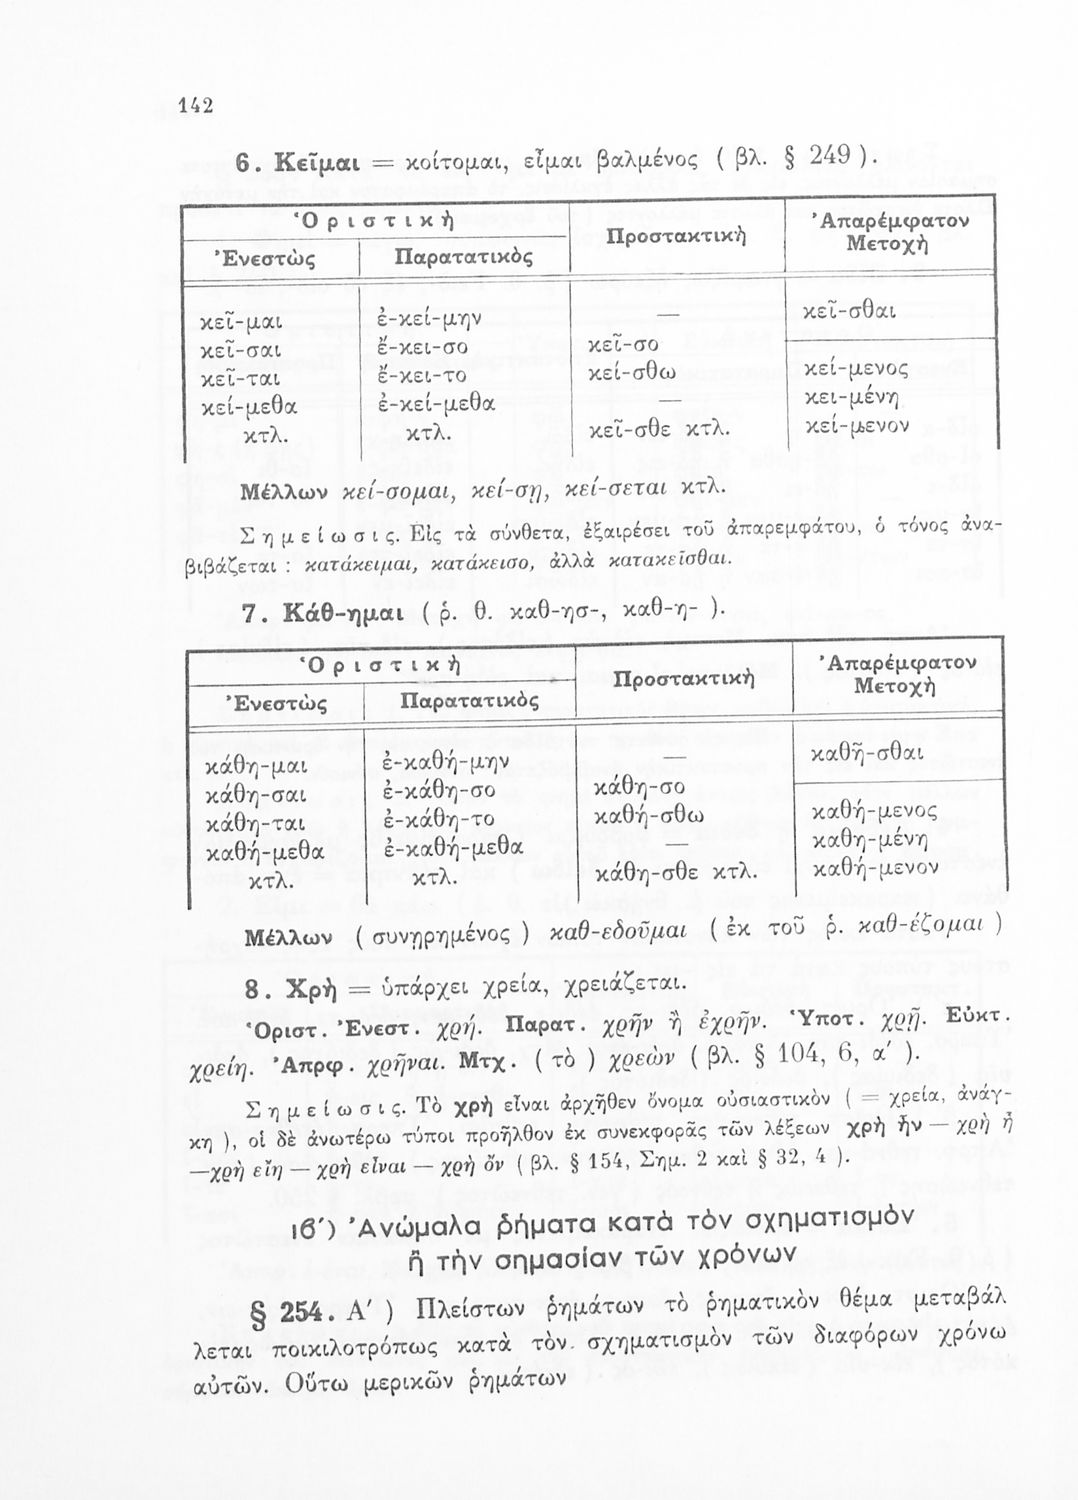 142
6. Κεῖμαι = κοίτομαι, εἶμαι βαλμένος ( βλ. § 249 ).
Ὁριστικὴ Προστακτικὴ Ἀπαρέμφατον
Μετοχὴ
Ἐνεστὼς Παρατατικὸς
κεῖ-μαι ἐ-κεί-μην — κεῖ-σθαι
κεῖ-σαι ἔ-κει-σο κεῖ-σο
κεῖ-ται ἔ-κει-το κεί-σθω κεί-μενος
κεί-μεθα ἐ-κεί-μεθα — κει-μένη
κτλ. κτλ. κεῖ-σθε κτλ. κεί-μενον
Μέλλων κεί-σομαι, κεί-σῃ, κεί-σεται κτλ.
Σημείωσις. Εἰς τὰ σύνθετα, ἐξαιρέσει τοῦ ἀπαρεμφάτου, ὁ τόνος ἀνα-
βιβάζεται : κατάκειμαι, κατάκεισο, ἀλλὰ κατακεῖσθαι.
7. Κάθ-ημαι ( ῥ. θ. καθ-ησ-, καθ-η- ).
Ὁριστικὴ Προστακτικὴ Ἀπαρέμφατον
Μετοχὴ
Ἐνεστὼς Παρατατικὸς
κάθη-μαι ἐ-καθή-μην καθῆ-σθαι
κάθη-σαι ἐ-κάθη-σο κάθη-σο
κάθη-ται ἐ-κάθη-το καθή-σθω καθή-μενος
καθή-μεθα ἐ-καθή-μεθα — καθη-μένη
κτλ. κτλ. κάθη-σθε κτλ. καθή-μενον
Μέλλων ( συνῃρημένος ) καθ-εδοῦμαι ( ἐκ τοῦ ῥ. καθ-έζομαι )
8. Χρὴ = ὑπάρχει χρεία, χρειάζεται.
Ὁριστ. Ἐνεστ. χρή. Παρατ. χρῆν ἢ ἐχρῆν. Ὑποτ. χρῇ. Εὐκτ.
χρείη. Ἀπρφ. χρῆναι. Μτχ. ( τὸ ) χρεὼν ( βλ. § 104, 6, α΄ ).
Σημείωσις. Τὸ χρὴ εἶναι ἀρχῆθεν ὄνομα οὐσιαστικὸν ( = χρεία, ἀνάγ-
κη ), οἱ δὲ ἀνωτέρω τύποι προῆλθον ἐκ συνεκφορᾶς τῶν λέξεων χρὴ ἦν — χρὴ ᾖ
—χρὴ εἴη — χρὴ εἶναι — χρὴ ὂν ( βλ. § 154, Σημ. 2 καὶ § 32, 4 ).
ιβ΄) Ἀνώμαλα ῥήματα κατὰ τὸν σχηματισμὸν
ἢ τὴν σημασίαν τῶν χρόνων
§ 254. Α΄ ) Πλείστων ῥημάτων τὸ ῥηματικὸν θέμα μεταβάλ
λεται ποικιλοτρόπως κατὰ τὸν. σχηματισμὸν τῶν διαφόρων χρόνω
αὐτῶν. Οὕτω μερικῶν ῥημάτων